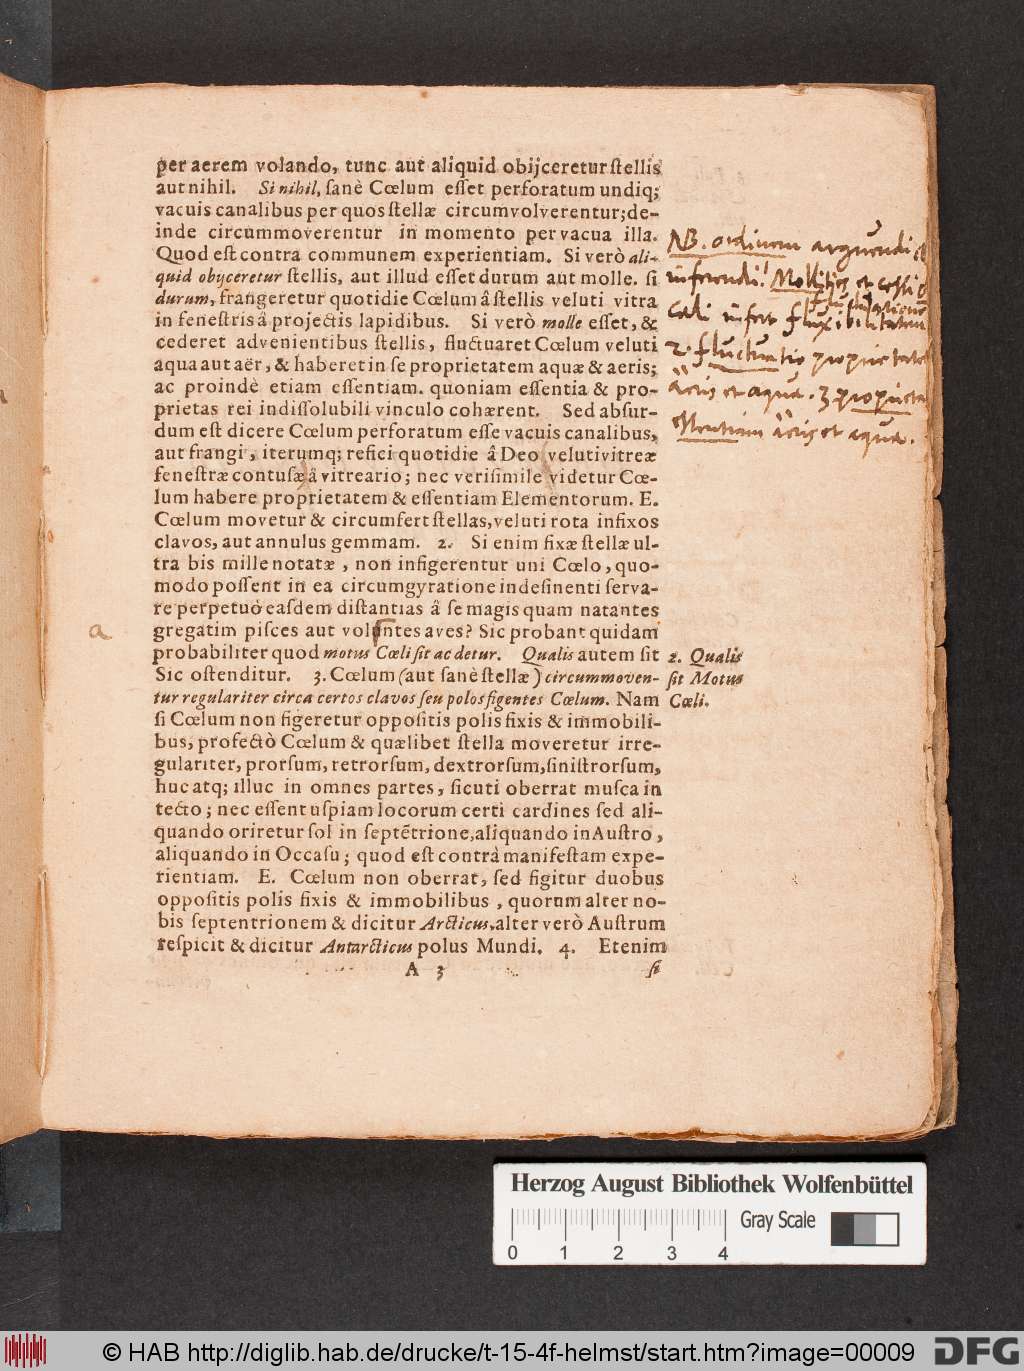 per aerem volando, tunc aut aliquid obijceretur ſtellis
aut nihil. Si nihil, ſanè Cœlum eſſet perforatum undiq;
vacuis canalibus per quos ſtellæ circumvolverentur; de-
inde circummoverentur in momento per vacua illa.
Quod eſt contra communem experientiam. Si verò ali-
quid obijceretur ſtellis, aut illud eſſet durum aut molle. ſi
durum, frangeretur quotidie Cœlum â ſtellis veluti vitra
in feneſtris â projectis lapidibus. Si verò molle eſſet, &
cederet advenientibus ſtellis, fluctuaret Cœlum veluti
aqua aut aër, & haberet in ſe proprietatem aquæ & aeris;
ac proindè etiam eſſentiam. quoniam eſſentia & pro-
prietas rei indiſſolubili vinculo cohærent. Sed abſur-
dum eſt dicere Cœlum perforatum eſſe vacuis canalibus,
aut frangi, iterumq; refici quotidie â Deo veluti vitreæ
feneſtræ contuſæ â vitreario; nec veriſimile videtur Cœ-
lum habere proprietatem & eſſentiam Elementorum. E.
Cœlum movetur & circumfert ſtellas, veluti rota infixos
clavos, aut annulus gemmam. 2. Si enim fixæ ſtellæ ul-
tra bis mille notatæ, non infigerentur uni Cœlo, quo-
modo poſſent in ea circumgyratione indeſinenti ſerva-
re perpetuò eaſdem diſtantias â ſe magis quam natantes
gregatim piſces aut volantes aves? Sic probant quidam
probabiliter quod motus Cœli ſit ac detur. Qualis autem ſit
Sic oſtenditur. 3. Cœlum (aut ſanè ſtellæ) circummoven-
tur regulariter circa certos clavos ſeu polos figentes Cœlum. Nam
ſi Cœlum non figeretur oppoſitis polis fixis & immobili-
bus, profectò Cœlum & quælibet ſtella moveretur irre-
gulariter, prorſum, retrorſum, dextrorſum, ſiniſtrorſum,
huc atq; illuc in omnes partes, ſicuti oberrat muſca in
tecto; nec eſſent uſpiam locorum certi cardines ſed ali-
quando oriretur ſol in ſeptẽtrione, aliquando in Auſtro,
aliquando in Occaſu; quod eſt contrà manifeſtam expe-
rientiam. E. Cœlum non oberrat, ſed figitur duobus
oppoſitis polis fixis & immobilibus, quorum alter no-
bis ſeptentrionem & dicitur Arcticus, alter verò Auſtrum
reſpicit & dicitur Antarcticus polus Mundi. 4. Etenim
A 3 ſi
NB. ordinem arguendi et
inferendi! Mollities et cessio
fluctuationem
cœli infert fluxibilitatem
2. fluctuatio proprietatem
aëris et aquæ. 3 proprietas
essentiam aëris et aquæ.
a
2. Qualis
ſit Motus
Cœli.
Herzog August Bibliothek Wolfenbüttel
Gray Scale
0 1 2 3 4
© HAB http://diglib.hab.de/drucke/t-15-4f-helmst/start.htm?image=00009
DFG